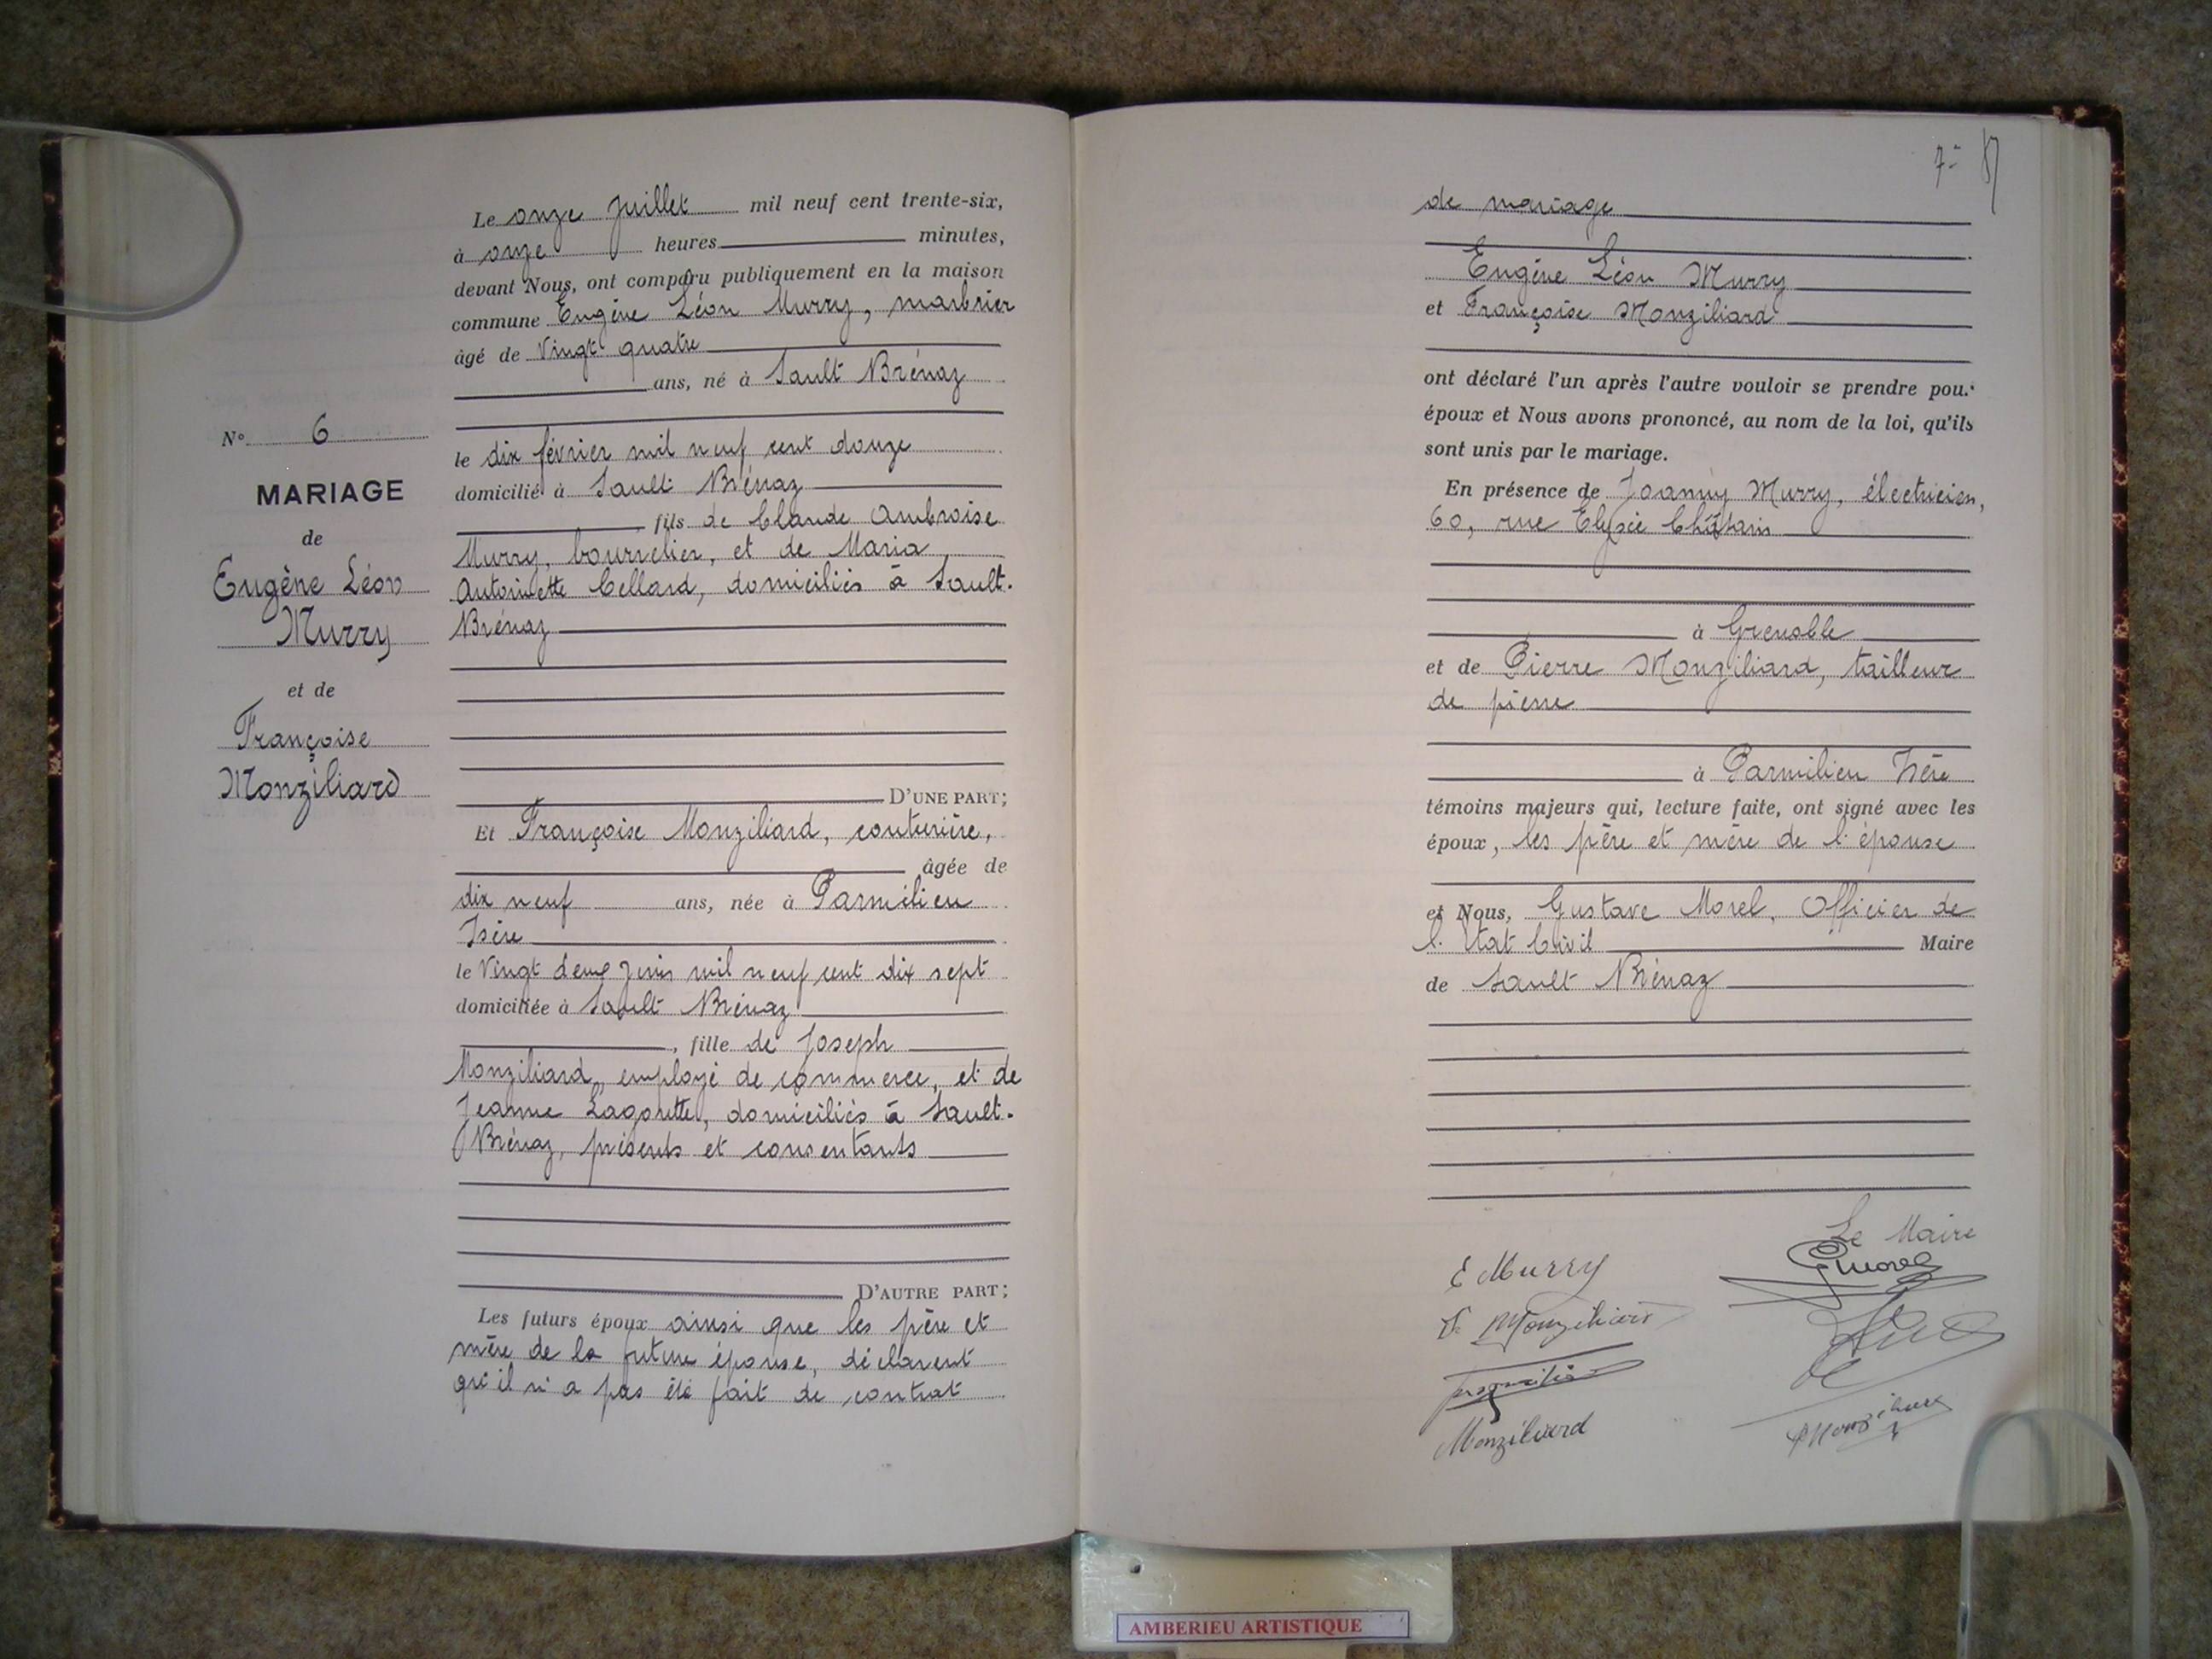 N° 6
MARIAGE
de
Eugène Léon
Murry
et de
Françoise
Monziliard
Le onze Juillet mil neuf cent trente-six,
à onze heures minutes,
devant Nous, ont comparu publiquement en la maison
commune Eugène Léon Murry, marbrier
âgé de Vingt quatre
ans, né à Sault Brénaz
le dix février mil neuf cent douze
domicilié à Sault Brénaz
, fils de Claude Ambroise
Murry, bourrelier, et de Maria
Antoinette Cellard, domiciliés à Sault-
Brénaz
D'UNE PART;
Et Françoise Monziliard, couturière,
âgée de
dix neuf ans, née à Parmilieu
Isère
le Vingt deux Juin mil neuf cent dix sept
domiciliée à Sault Brénaz
, fille de Joseph
Monziliard, employé de commerce, et de
Jeanne Lagoutte, domiciliés à Sault-
Brénaz, présents et consentants
D'AUTRE PART;
Les futurs époux ainsi que les père et
mère de la future épouse, déclarent
qu'il n'a pas été fait de contrat
7-
de mariage
Eugène Léon Murry
et Françoise Monziliard
ont déclaré l'un après l'autre vouloir se prendre pour
époux et Nous avons prononcé, au nom de la loi, qu'ils
sont unis par le mariage.
En présence de Joanny Murry, électricien,
60, rue Elysée Châtain
à Grenoble
et de Pierre Monziliard, tailleur
de pierre
à Parmilieu Isère
témoins majeurs qui, lecture faite, ont signé avec les
époux, les père et mère de l'épouse
et Nous, Gustave Morel, Officier de
l'Etat Civil Maire
de Sault Brénaz
Le Maire
E Murry
GMorel
Monziliard
AMBERIEU ARTISTIQUE